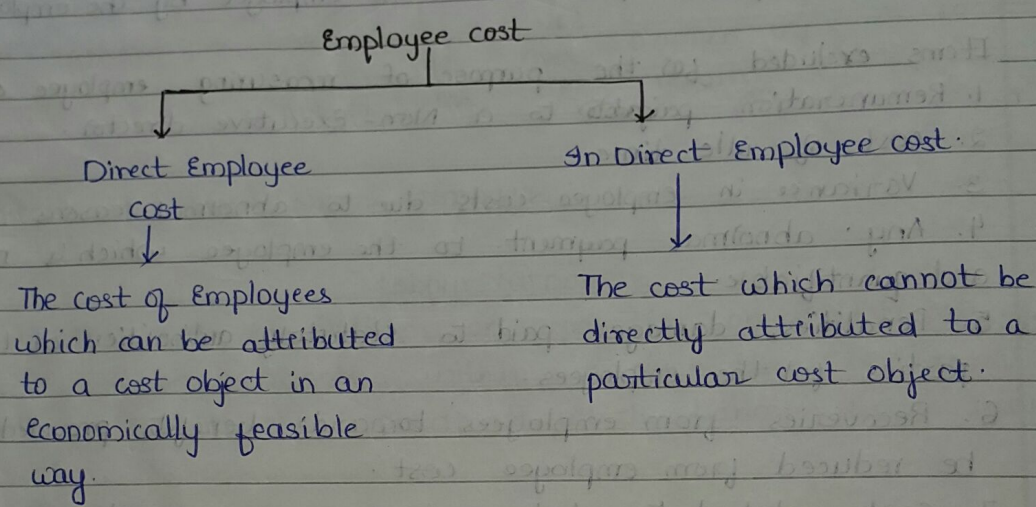 Employee cost
Direct Employee
cost
The cost of Employees
which can be attributed
to a cost object in an
economically feasible
way.
In Direct Employee cost.
The cost which cannot be
directly attributed to a
particular cost object.